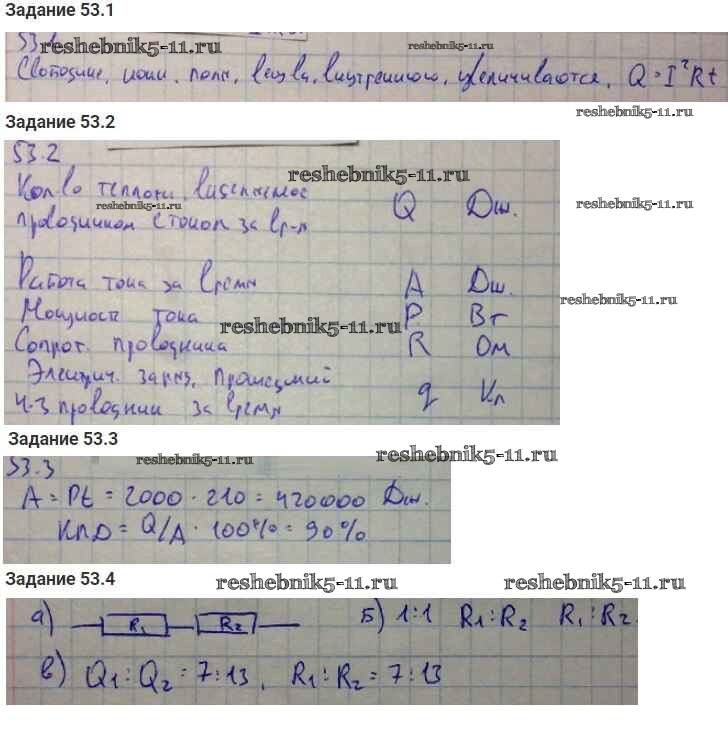 Задание 53.1
53.1 reshebnik5-11.ru reshebnik5-11.ru
Свободные, ионы, поля, вещ-ва, внутренного, увеличиваются, Q = I²Rt
reshebnik5-11.ru
Задание 53.2
53.2
reshebnik5-11.ru
Кол-во теплоты, Q Дж.
reshebnik5-11.ru reshebnik5-11.ru
проводником с током за вр-я
Работа тока за время A Дж.
reshebnik5-11.ru
Мощность тока P Вт
reshebnik5-11.ru
Сопрот. проводника R Ом
Электрич. заряд, прошедший
ч-з проводник за время q Кл
Задание 53.3
reshebnik5-11.ru reshebnik5-11.ru
53.3
A = Pt = 2000 · 210 = 420000 Дж.
КПД = Q/A · 100% = 90%
Задание 53.4 reshebnik5-11.ru reshebnik5-11.ru
а) R₁ R₂ Б) 1:1 R₁:R₂ R₁:R₂
в) Q₁:Q₂ = 7:13, R₁:R₂ = 7:13